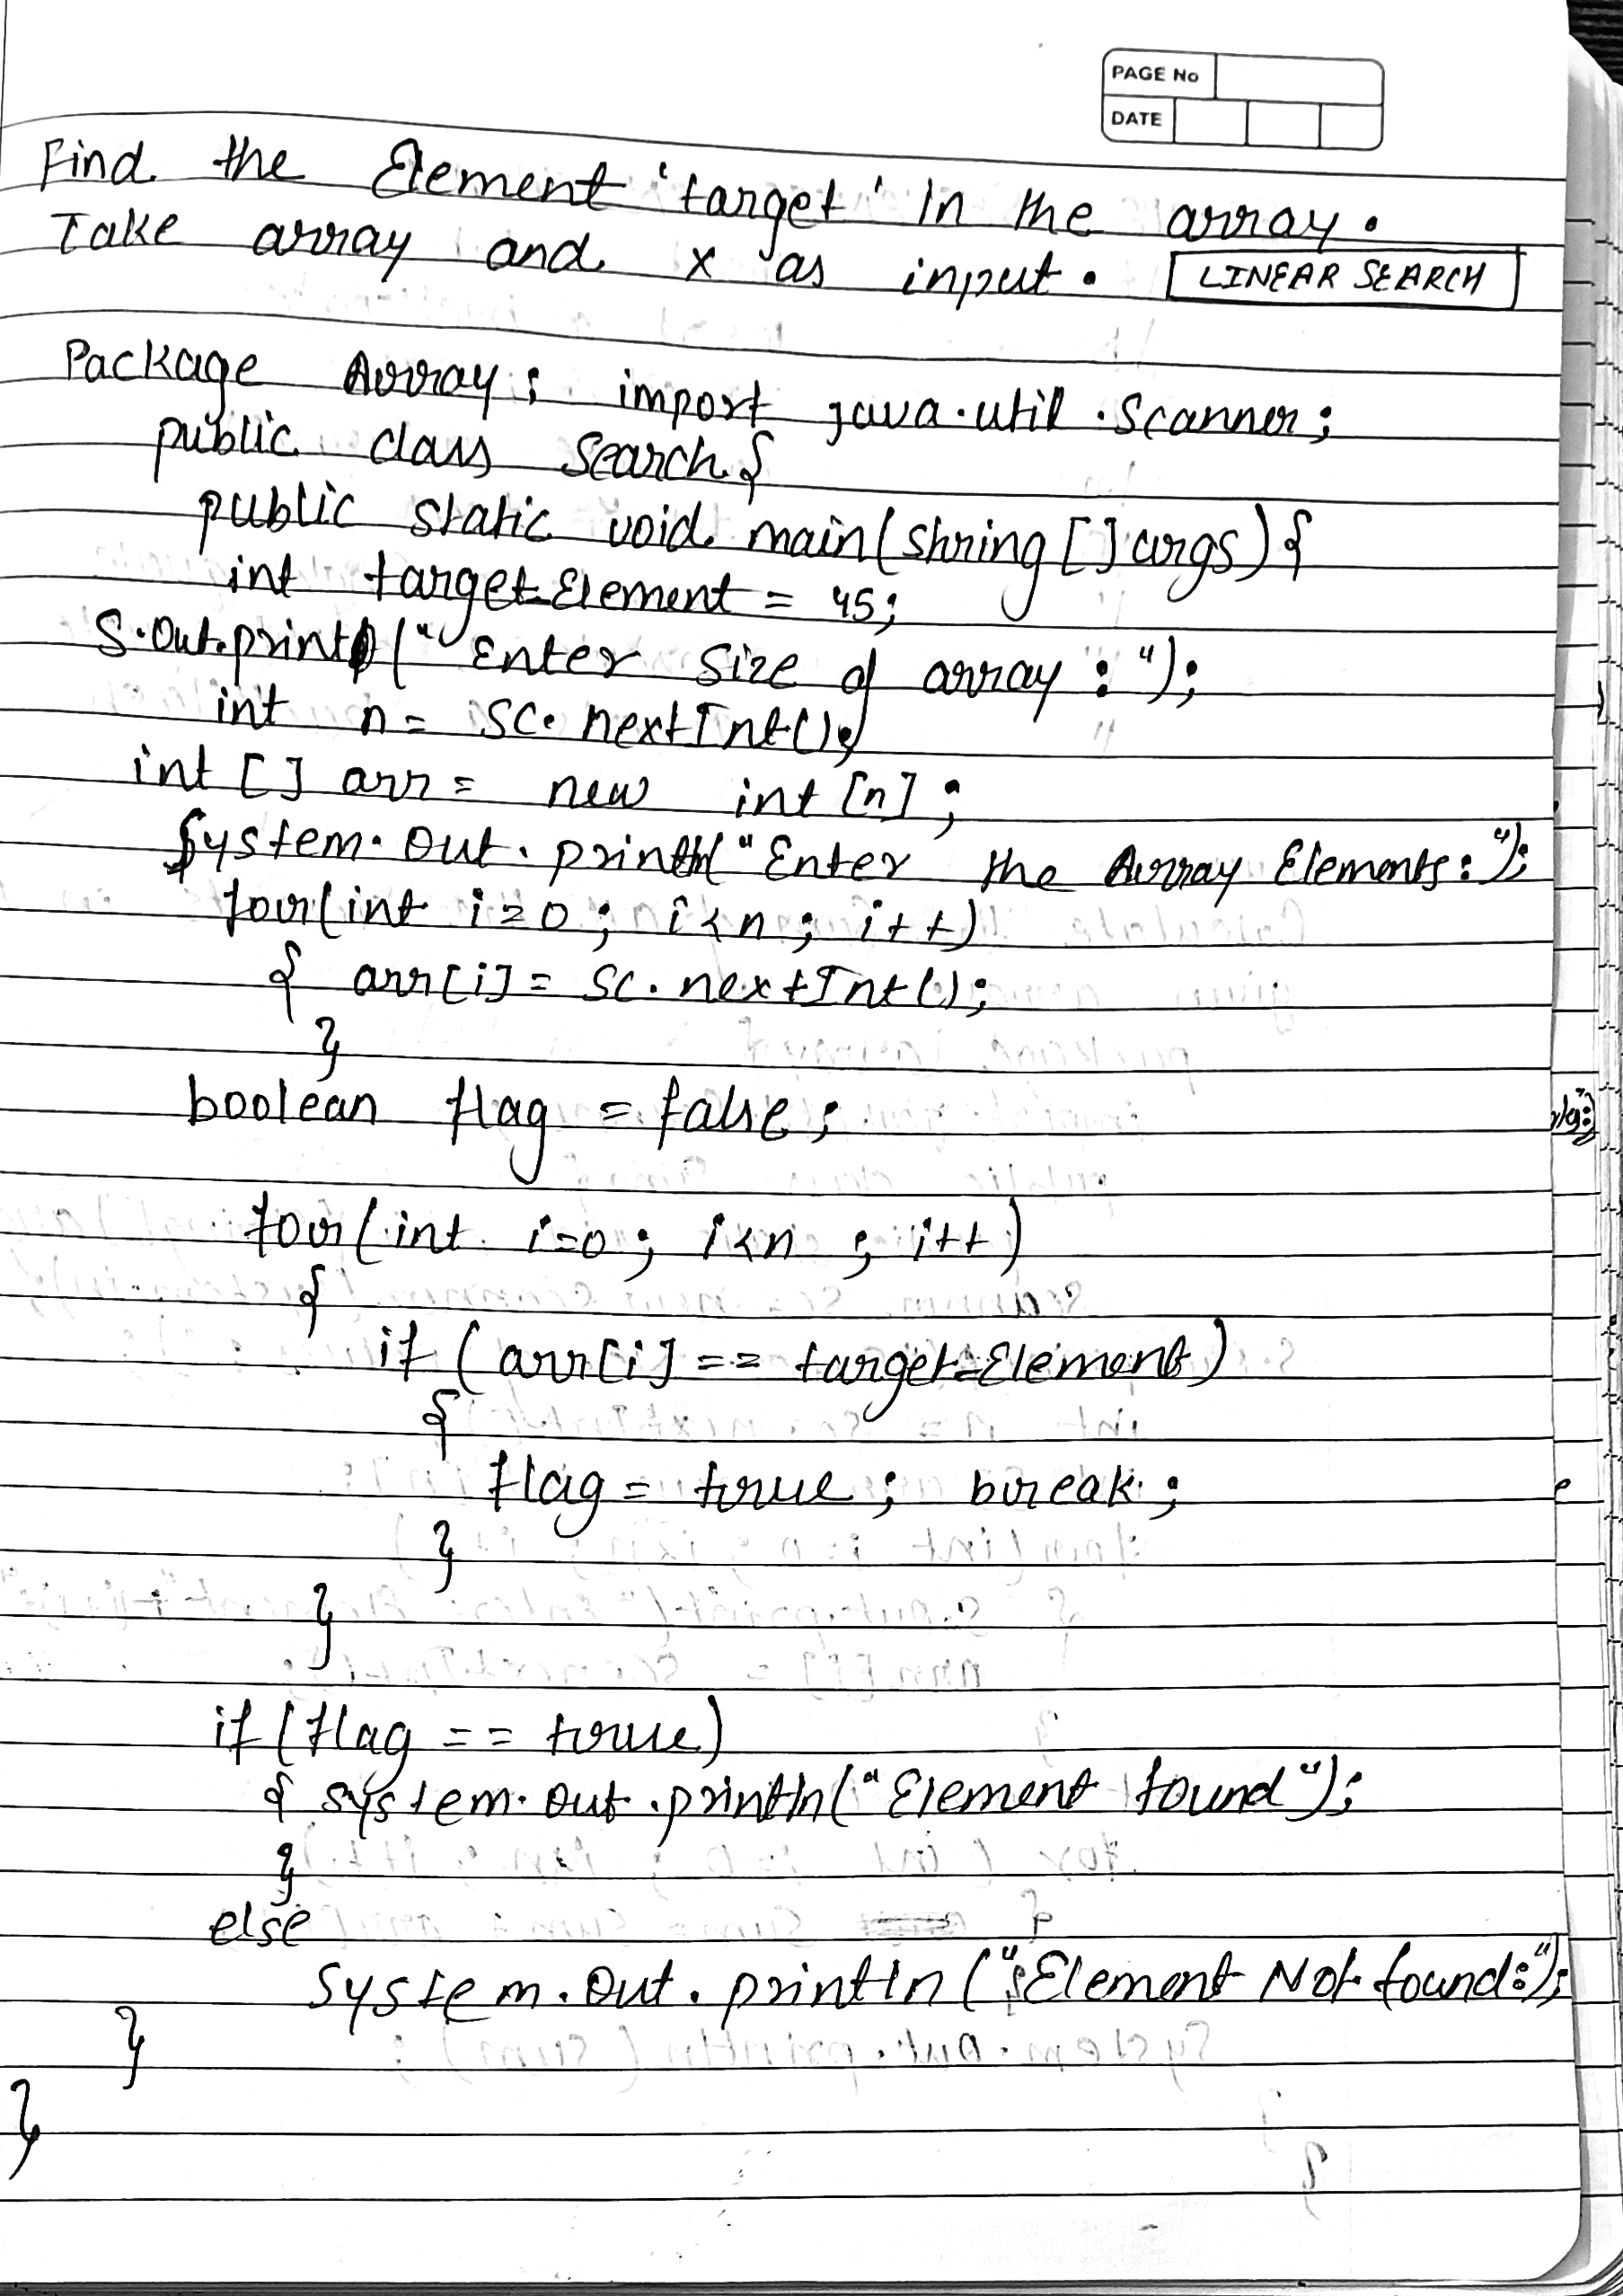 PAGE No
DATE
Find the Element 'target' In the array.
Take array and x as input. LINEAR SEARCH
Package Array; import java.util.Scanner;
public class Search{
public static void main(String[] args){
int target_Element = 45;
S.out.print("Enter Size of array : ");
int n = sc.nextInt();
int [] arr = new int [n];
System.out.println("Enter the Array Elements: ");
for(int i=0; i<n; i++)
{ arr[i] = sc.nextInt();
}
boolean flag = false;
for(int i=0; i<n; i++)
{
if (arr[i] == target_Element)
{
flag = true; break;
}
}
if (flag == true)
{ system.out.println("Element found");
}
else
System.out.println("Element Not found:");
}
}